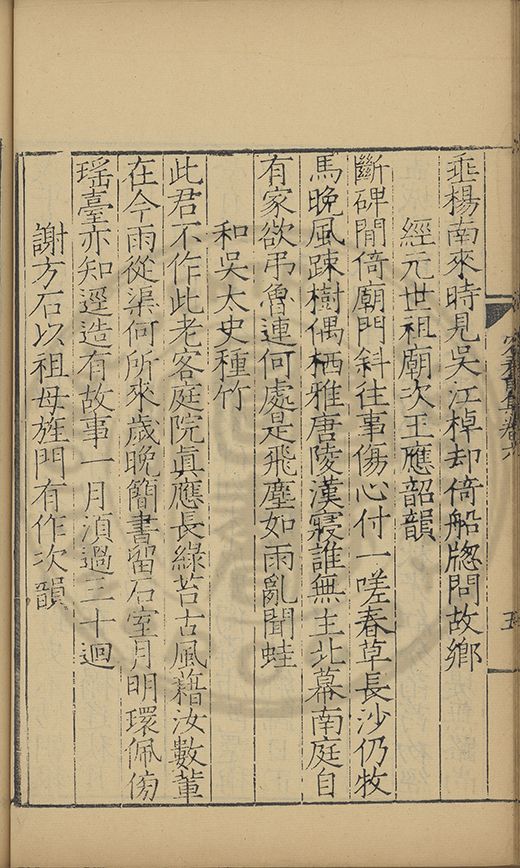 垂楊南來時見吳江棹却倚船牕問故鄉
經元世祖廟次王應韶韻
斷碑閒倚廟門斜往事傷心付一嗟春草長沙仍牧
馬晚風踈樹偶栖雅唐陵漢寢誰無主北幕南庭自
有家欲弔魯連何處是飛塵如雨亂聞蛙
和吳太史種竹
此君不作此老客庭院眞應長綠苔古風藉汝數輩
在今雨從渠何所來歲晩簡書留石室月明環佩傍
瑤臺亦知逕造有故事一月湏過三十迴
謝方石以祖母旌門有作次韻